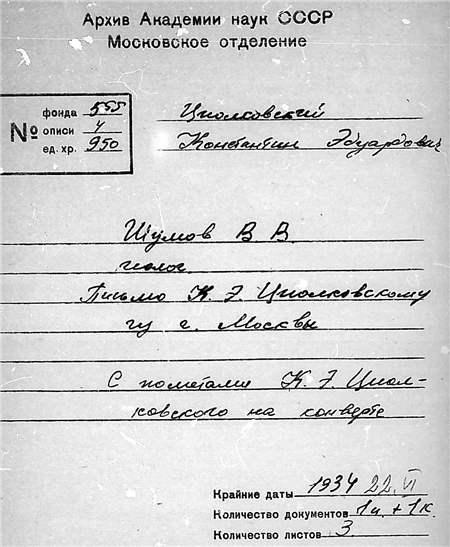 Архив Академии наук СССР
Московское отделение
№
фонда 555
описи 4
ед. хр. 950
Циолковский
Константин Эдуардович
Шумов В. В.
геолог
Письмо К. Э. Циолковскому
г. Москвы
С пометами К. Э. Циол-
ковского на конверте
Крайние даты 1934 22.VI
Количество документов 1п. + 1к.
Количество листов 3.